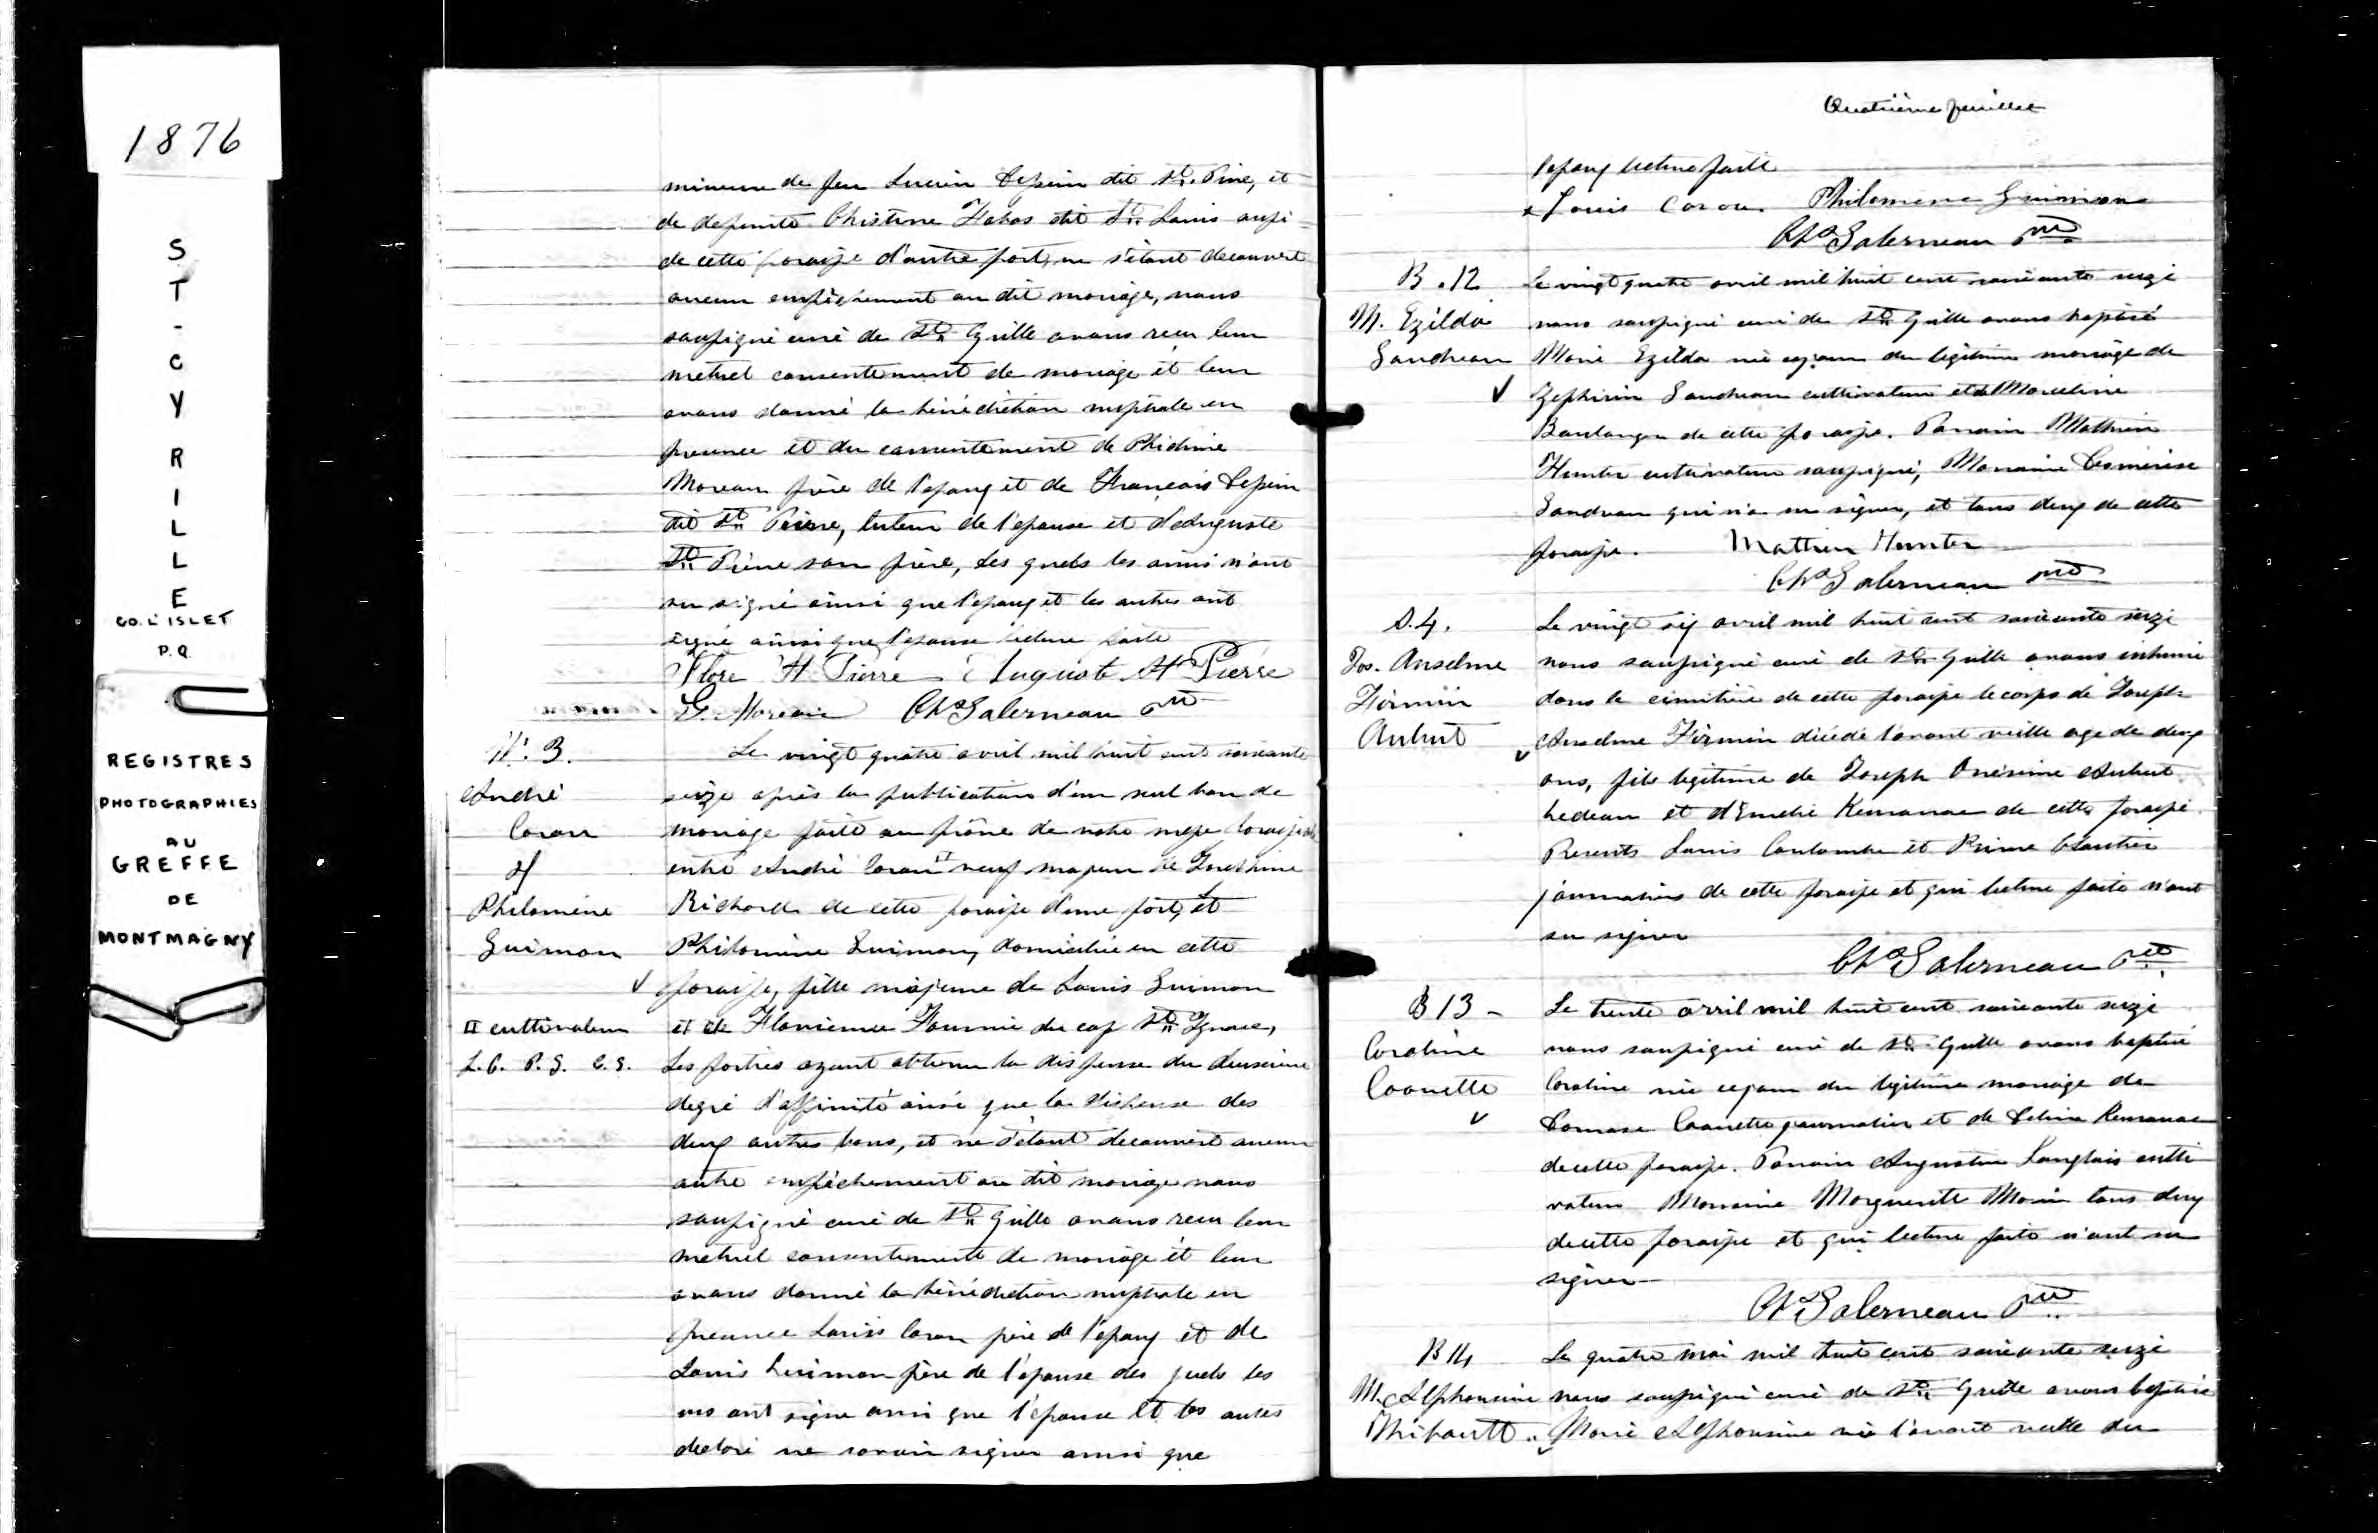 1876
ST-CYRILLE
CO. L'ISLET
P.Q.
REGISTRES
PHOTOGRAPHIES
AU
GREFFE
DE
MONTMAGNY
mineure de feu Lucien Lepein dit St. Pierre, et
de defunte Christine dit St. Louis aussi
de cette paroisse d'autre part, ne s'étant decouvert
aucun empêchement au dit mariage, nous
soussigné curé de St. Cyrille avons reçu leur
mutuel consentement de mariage et leur
avons donné la bénédiction nuptiale en
presence et du consentement de
Moreau père de l'epoux et de Francois Lepein
dit St. Pierre, tuteur de l'epouse et d'Auguste
St. Pierre son frère, des quels les uns n'ont
su signé ainsi que l'epoux et les autres ont
signé ainsi que l'epouse lecture faite
Flore St Pierre Auguste St Pierre
G. Moreau Chs Galerneau Ptre
M. 3.
André
Caron
&
Philomène
Guimon
Le vingt quatre avril mil huit cent soixante
seize après la publication d'un seul ban de
mariage faite au prône de notre messe paroissiale
entre André Caron veuf majeur de
Richard de cette paroisse d'une part, et
Philomène Guimon, domiciliée en cette
paroisse, fille majeure de Louis Guimon
cultivateur
L.C. P.G. C.G.
et de Fournier du cap St. Ignace,
Les parties ayant obtenu la dispense du deuxieme
degré d'affinité ainsi que la dispense des
deux autres bans, et ne s'étant decouvert aucun
autre empêchement au dit mariage nous
soussigné curé de St. Cyrille avons reçu leur
mutuel consentement de mariage et leur
avons donné la bénédiction nuptiale en
presence Louis Caron père de l'epoux et de
Louis Guimon père de l'épouse des quels les
uns ont signé ainsi que l'épouse et les autres
declaré ne savoir signer ainsi que
Quatrième feuillet
l'epoux lecture faite
x Louis Caron Philomene Guimon
Chs Galerneau Ptre
B. 12
M. Ezilda
Gaudreau
Le vingt quatre avril mil huit cent soixante seize
nous soussigné curé de St. Cyrille avons baptisé
Marie Ezilda née ce jour du legitime mariage de
Zephirin Gaudreau cultivateur et de Marceline
Boulanger de cette paroisse. Parrain Mathieu
Hunter cultivateur soussigné, Marraine
Gaudreau qui n'a su signer, et tous deux de cette
paroisse. Mathieu Hunter
Chs Galerneau Ptre
S. 4.
Jos. Anselme
Firmin
Aubut
Le vingt six avril mil huit cent soixante seize
nous soussigné curé de St. Cyrille avons inhumé
dans le cimitière de cette paroisse le corps de Joseph
Anselme Firmin décédé l'avant veille age de deux
ans, fils legitime de Joseph Onésime Aubut
bedeau et d'Emelie de cette paroisse.
Presents Louis Coulombe et Cloutier
journaliers de cette paroisse et qui lecture faite n'ont
su signer
Chs Galerneau Ptre
B 13 -
Caroline
Caouette
Le trente avril mil huit cent soixante seize
nous soussigné curé de St. Cyrille avons baptisé
Caroline née ce jour du legitime mariage de
Damase Caouette journalier et de
de cette paroisse. Parrain Augustin Langlais culti
vateur Marraine Marguerite Morin tous deux
de cette paroisse et qui lecture faite n'ont su
signer -
Chs Galerneau Ptre
B 14
M. Alphonsine
Thibault.
Le quatre mai mil huit cent soixante seize
nous soussigné curé de St. Cyrille avons baptisé
Marie Alphonsine née l'avant veille du